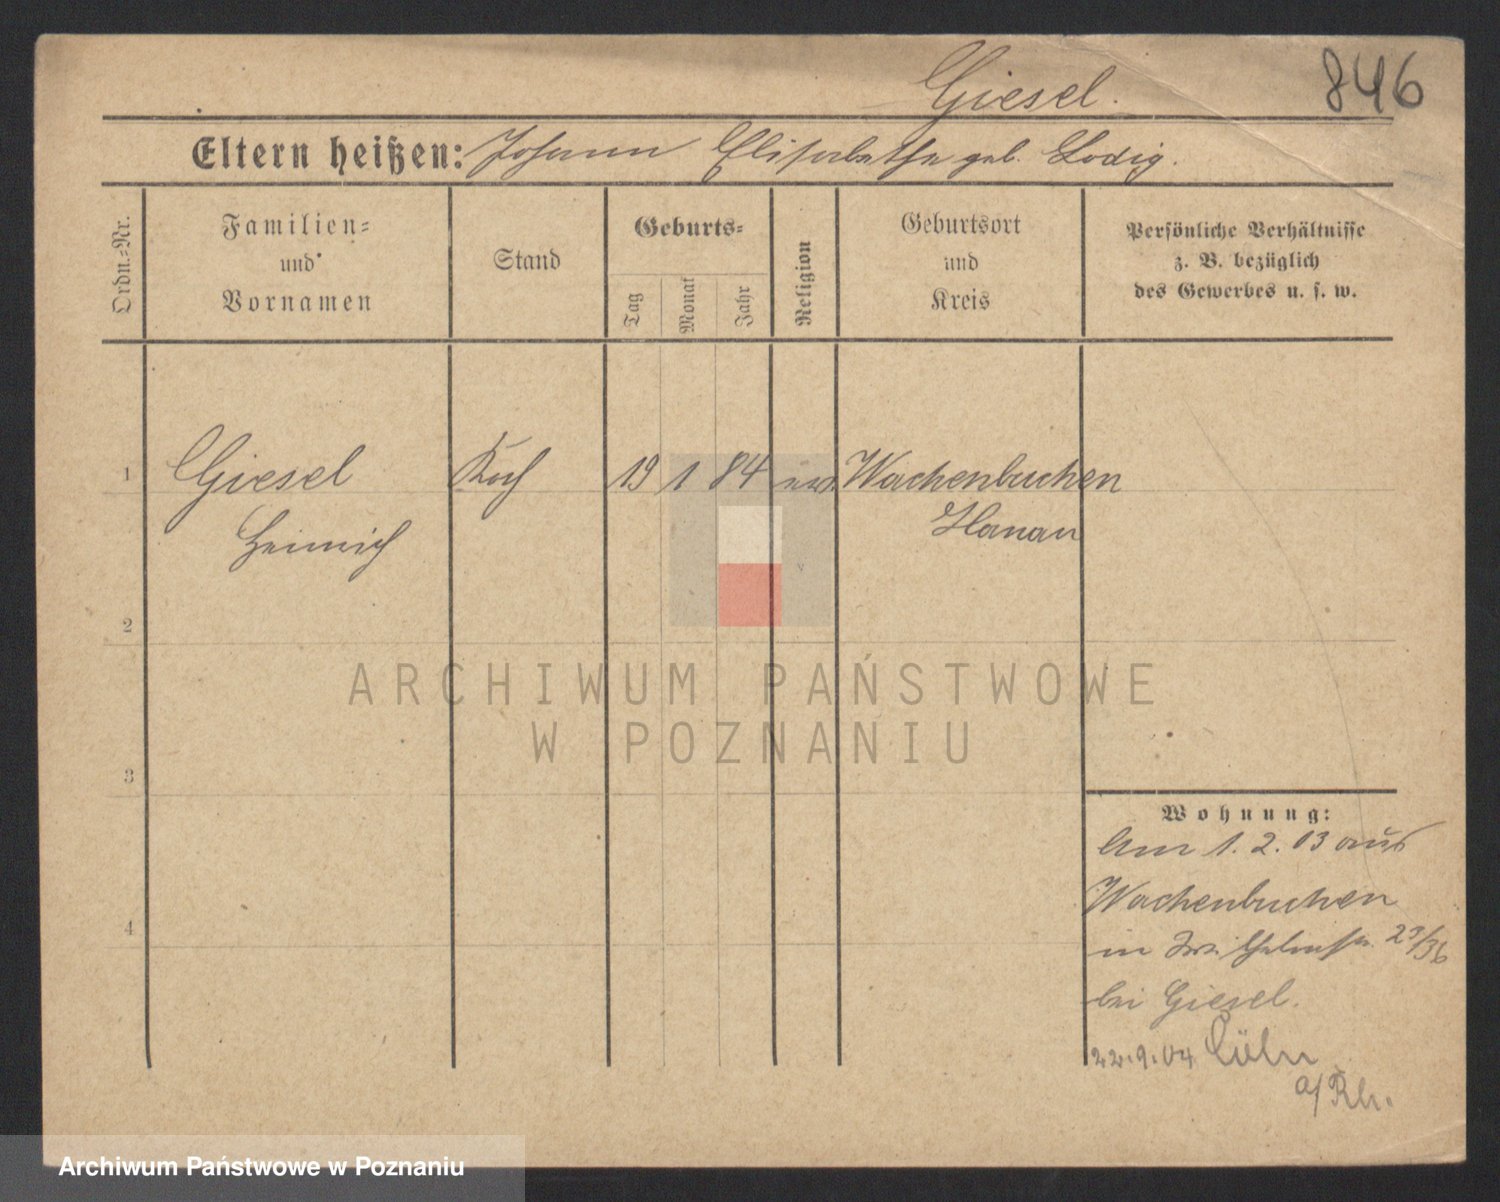 Giesel.
846
Eltern heißen: Johann Elisabetha geb. Lodig.
Ordn.-Nr.
Familien=
und
Vornamen
Stand
Geburts=
Tag
Monat
Jahr
Religion
Geburtsort
und
Kreis
Persönliche Verhältnisse
z. B. bezüglich
des Gewerbes u. s. w.
1 Giesel Koch 19 1 84 Wachenbuchen
Heinrich Hanau
2
ARCHIWUM PAŃSTWOWE
W POZNANIU
3
Wohnung:
Am 1. 2. 03 aus
Wachenbuchen
in 23/36
bei Giesel.
4
22.9.04 Cöln
a/Rh.
Archiwum Państwowe w Poznaniu